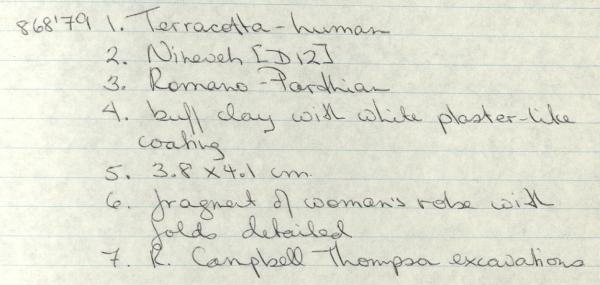 868'79 1. Terracotta-human
2. Nineveh [D12]
3. Romano-Parthian
4. buff clay with white plaster-like
coating
5. 3.8 x 4.1 cm.
6. fragment of woman's robe with
folds detailed
7. R. Campbell Thompson excavations